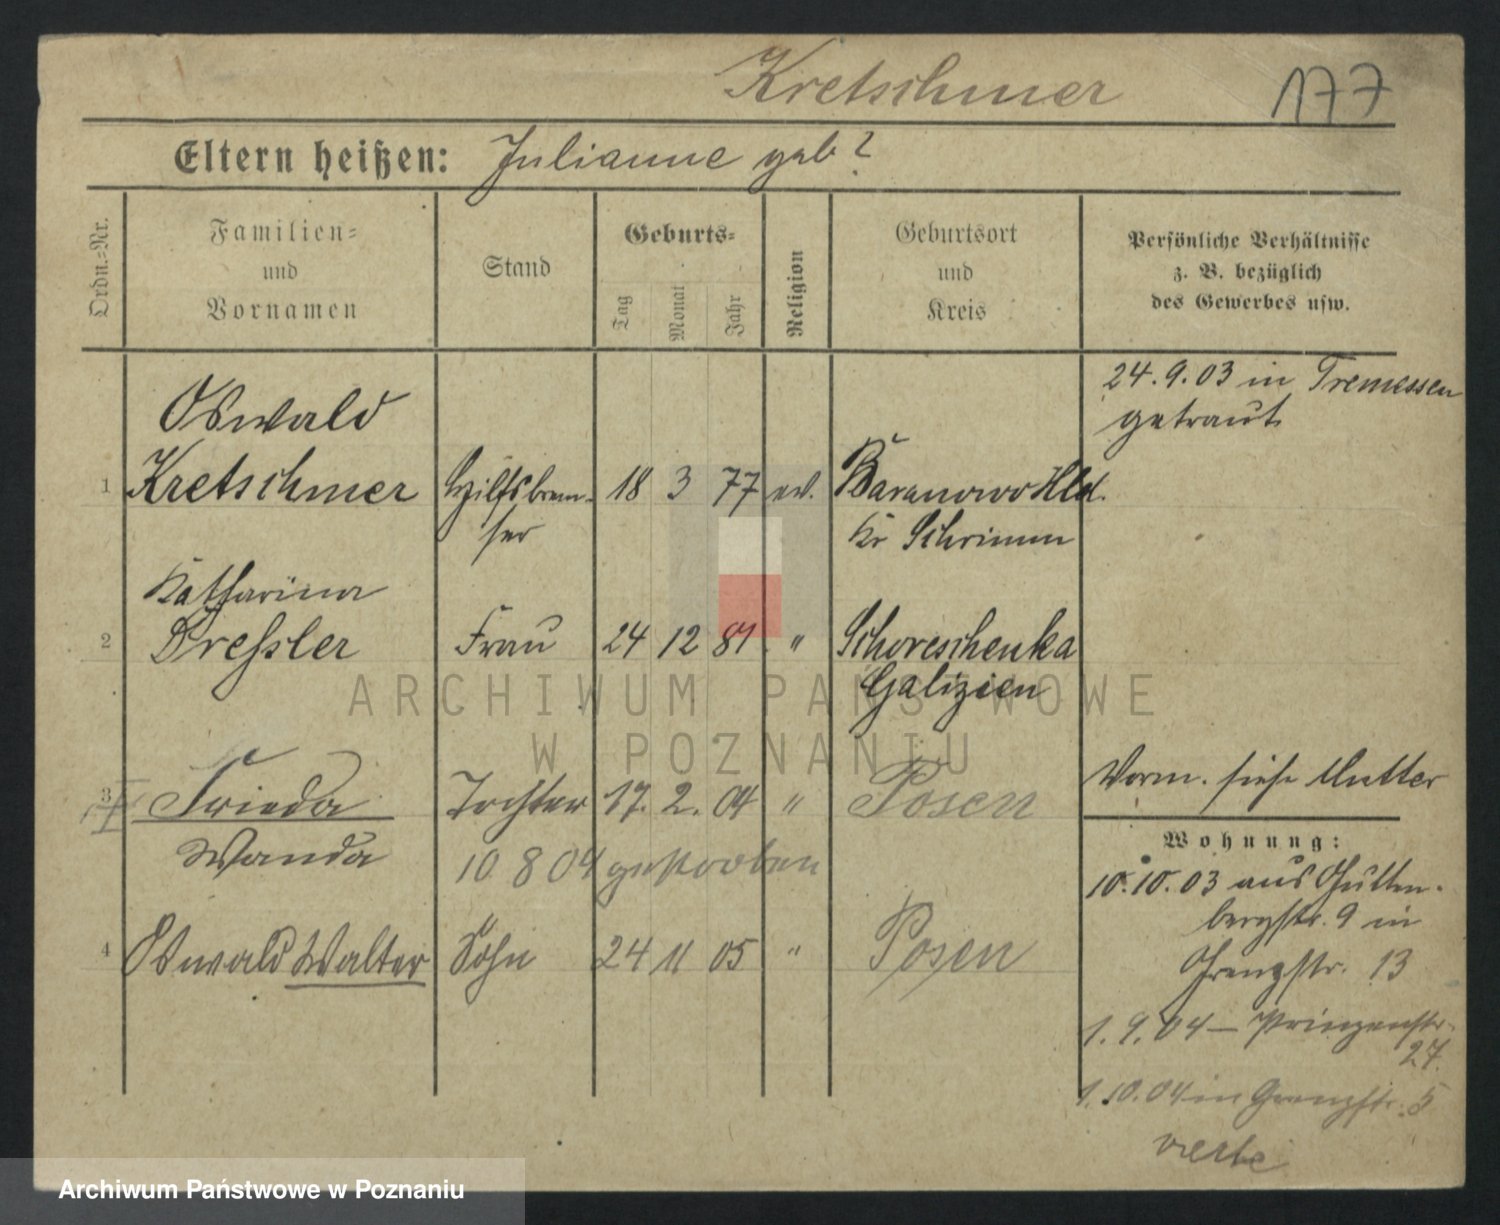 Kretschmer 177
Eltern heißen: Julianne geb?
Ordn.-Nr.
Familien-
und
Vornamen
Stand
Geburts-
Tag
Monat
Jahr
Religion
Geburtsort
und
Kreis
Persönliche Verhältnisse
z. B. bezüglich
des Gewerbes usw.
24.9.03 in Tremessen
getraut
Oswald
1 Kretschmer Hilfsbrem- 18 3 77 ev. Baranowo Hld.
ser Kr Schrimm
Katharina
2 Dressler Frau 24 12 81 " Schoreschenka
Galizien
ARCHIWUM PAŃSTWOWE
W POZNANIU
Vorm. siehe Mutter
3 Frieda Tochter 17. 2. 04 " Posen
Wohnung:
Wanda 10 8 04 gestorben
10.10.03 aus Gutten-
bergstr. 9 in
4 Oswald Walter Sohn 24 11 05 " Posen
Grenzstr. 13
1.9.04 — Prinzenstr.
27.
1.10.04 in Grenzstr. 5
Archiwum Państwowe w Poznaniu